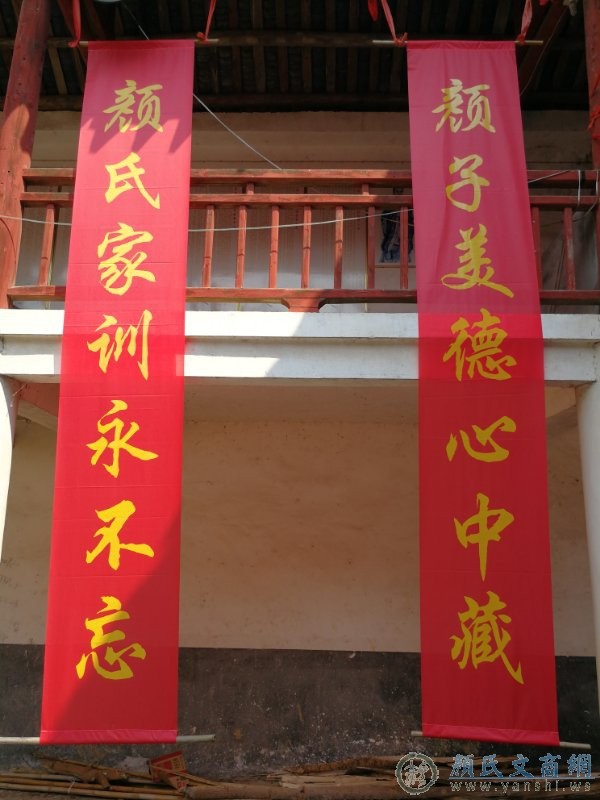 颜子美德心中藏
颜氏家训永不忘
颜氏文商網
www.yanshi.ws